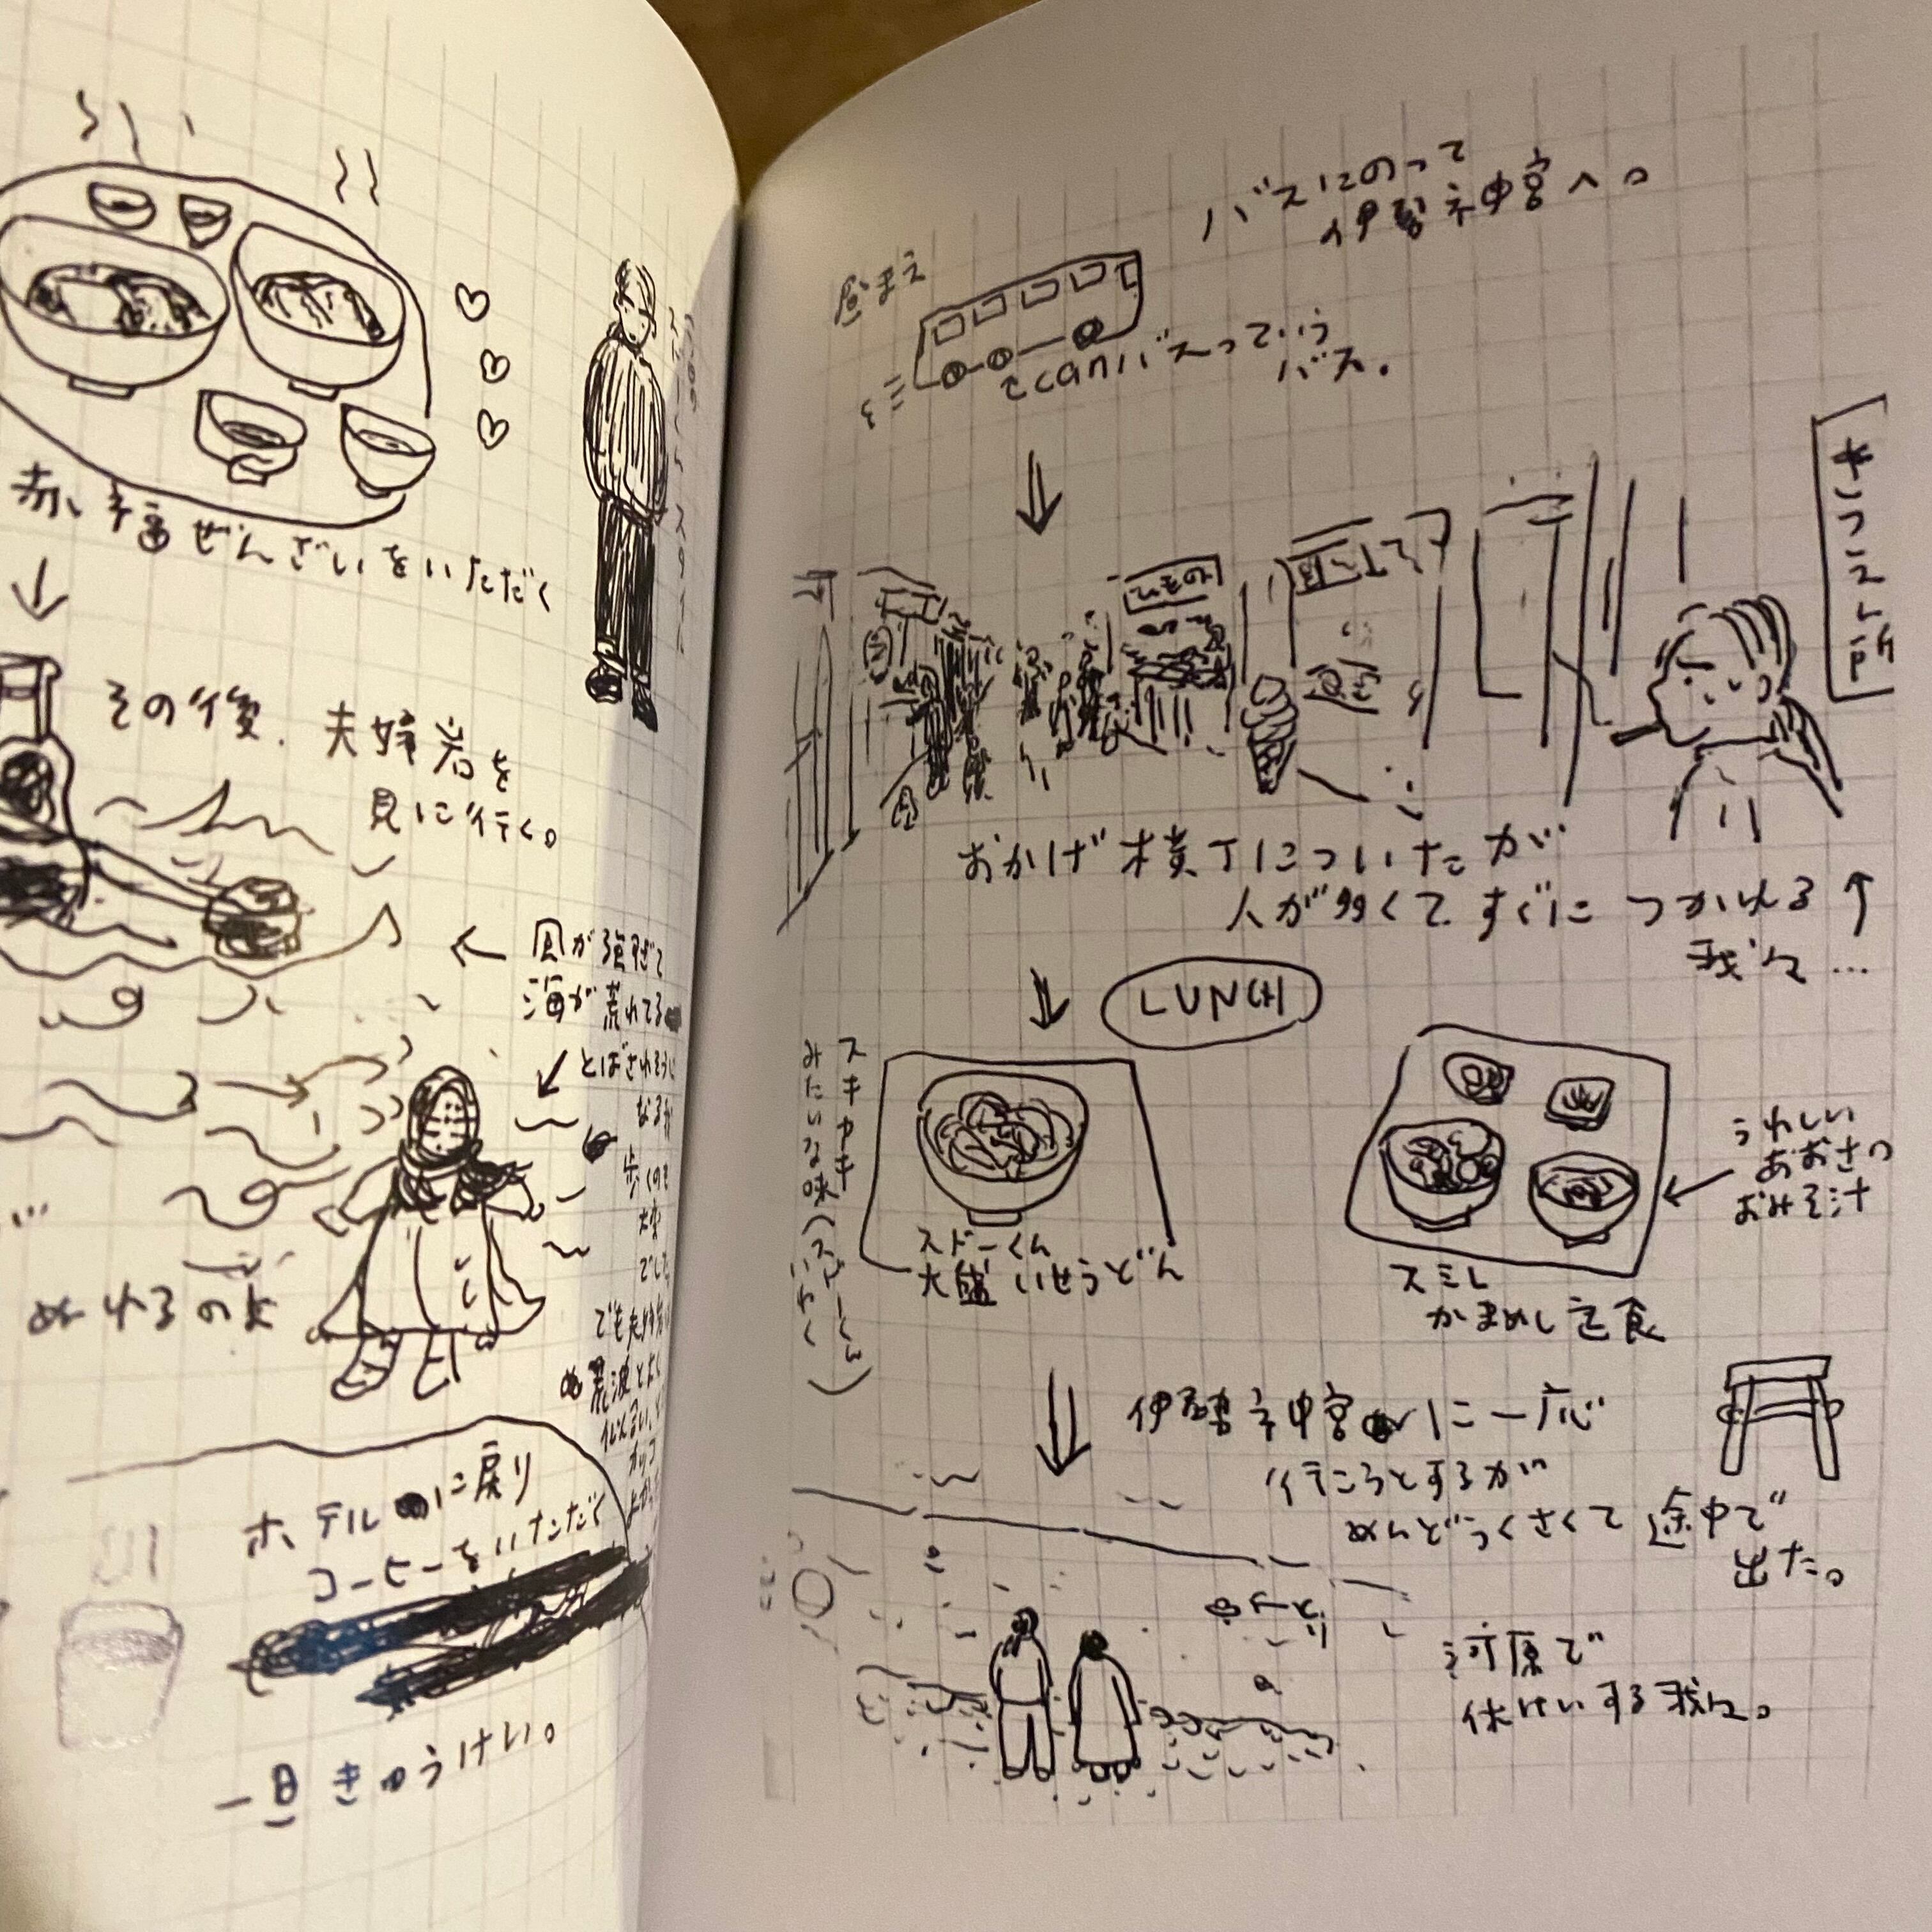 赤福ぜんざいをいただく
その後、夫婦岩を
見に行く。
風が強すぎて
海が荒れてる
とばされそうに
なるが
歩くのも
大変
でした
ぬれるの図
ホテルに戻り
コーヒーをいただく
一旦きゅうけい。
バスにのって
伊勢神宮へ。
昼まえ
canバスっていう
バス.
きつえん所
おかげ横丁についたが
人が多くてすぐにつかれる
我々…
LUNCH
スキヤキ
みたいな味(スドーくん
いわく)
スドーくん
大盛いせうどん
うれしい
あおさの
おみそ汁
スミレ
かまめし定食
伊勢神宮に一応
行こうとするが
めんどうくさくて途中で
出た。
河原で
休けいする我々。